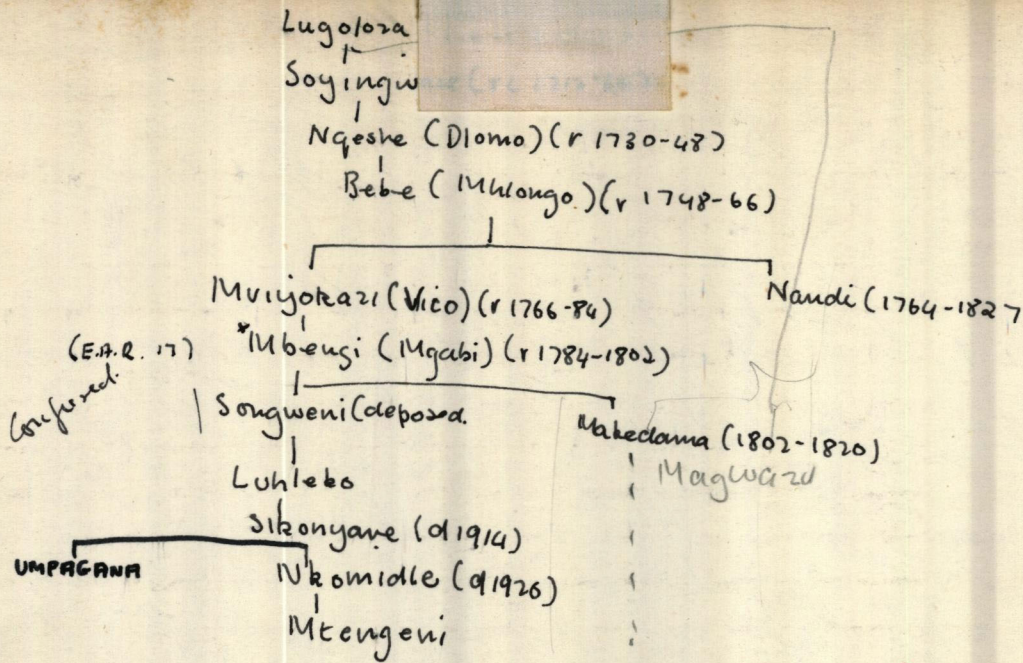 Lugoloza
Soyingw
Nqeshe (Dlomo) (r 1730-48)
Bebe (Mhlongo) (r 1748-66)
Mvuyokazi (Vico) (r 1766-84)
Nandi (1764-1827
(E.A.R. 17)
*Mbengi (Mgabi) (r 1784-1802)
Confused.
Songweni (deposed.
Makedama (1802-1820)
Magwaza
Luhleko
Sikonyane (d 1914)
UMPAGANA
Nkomidle (d 1926)
Mtengeni